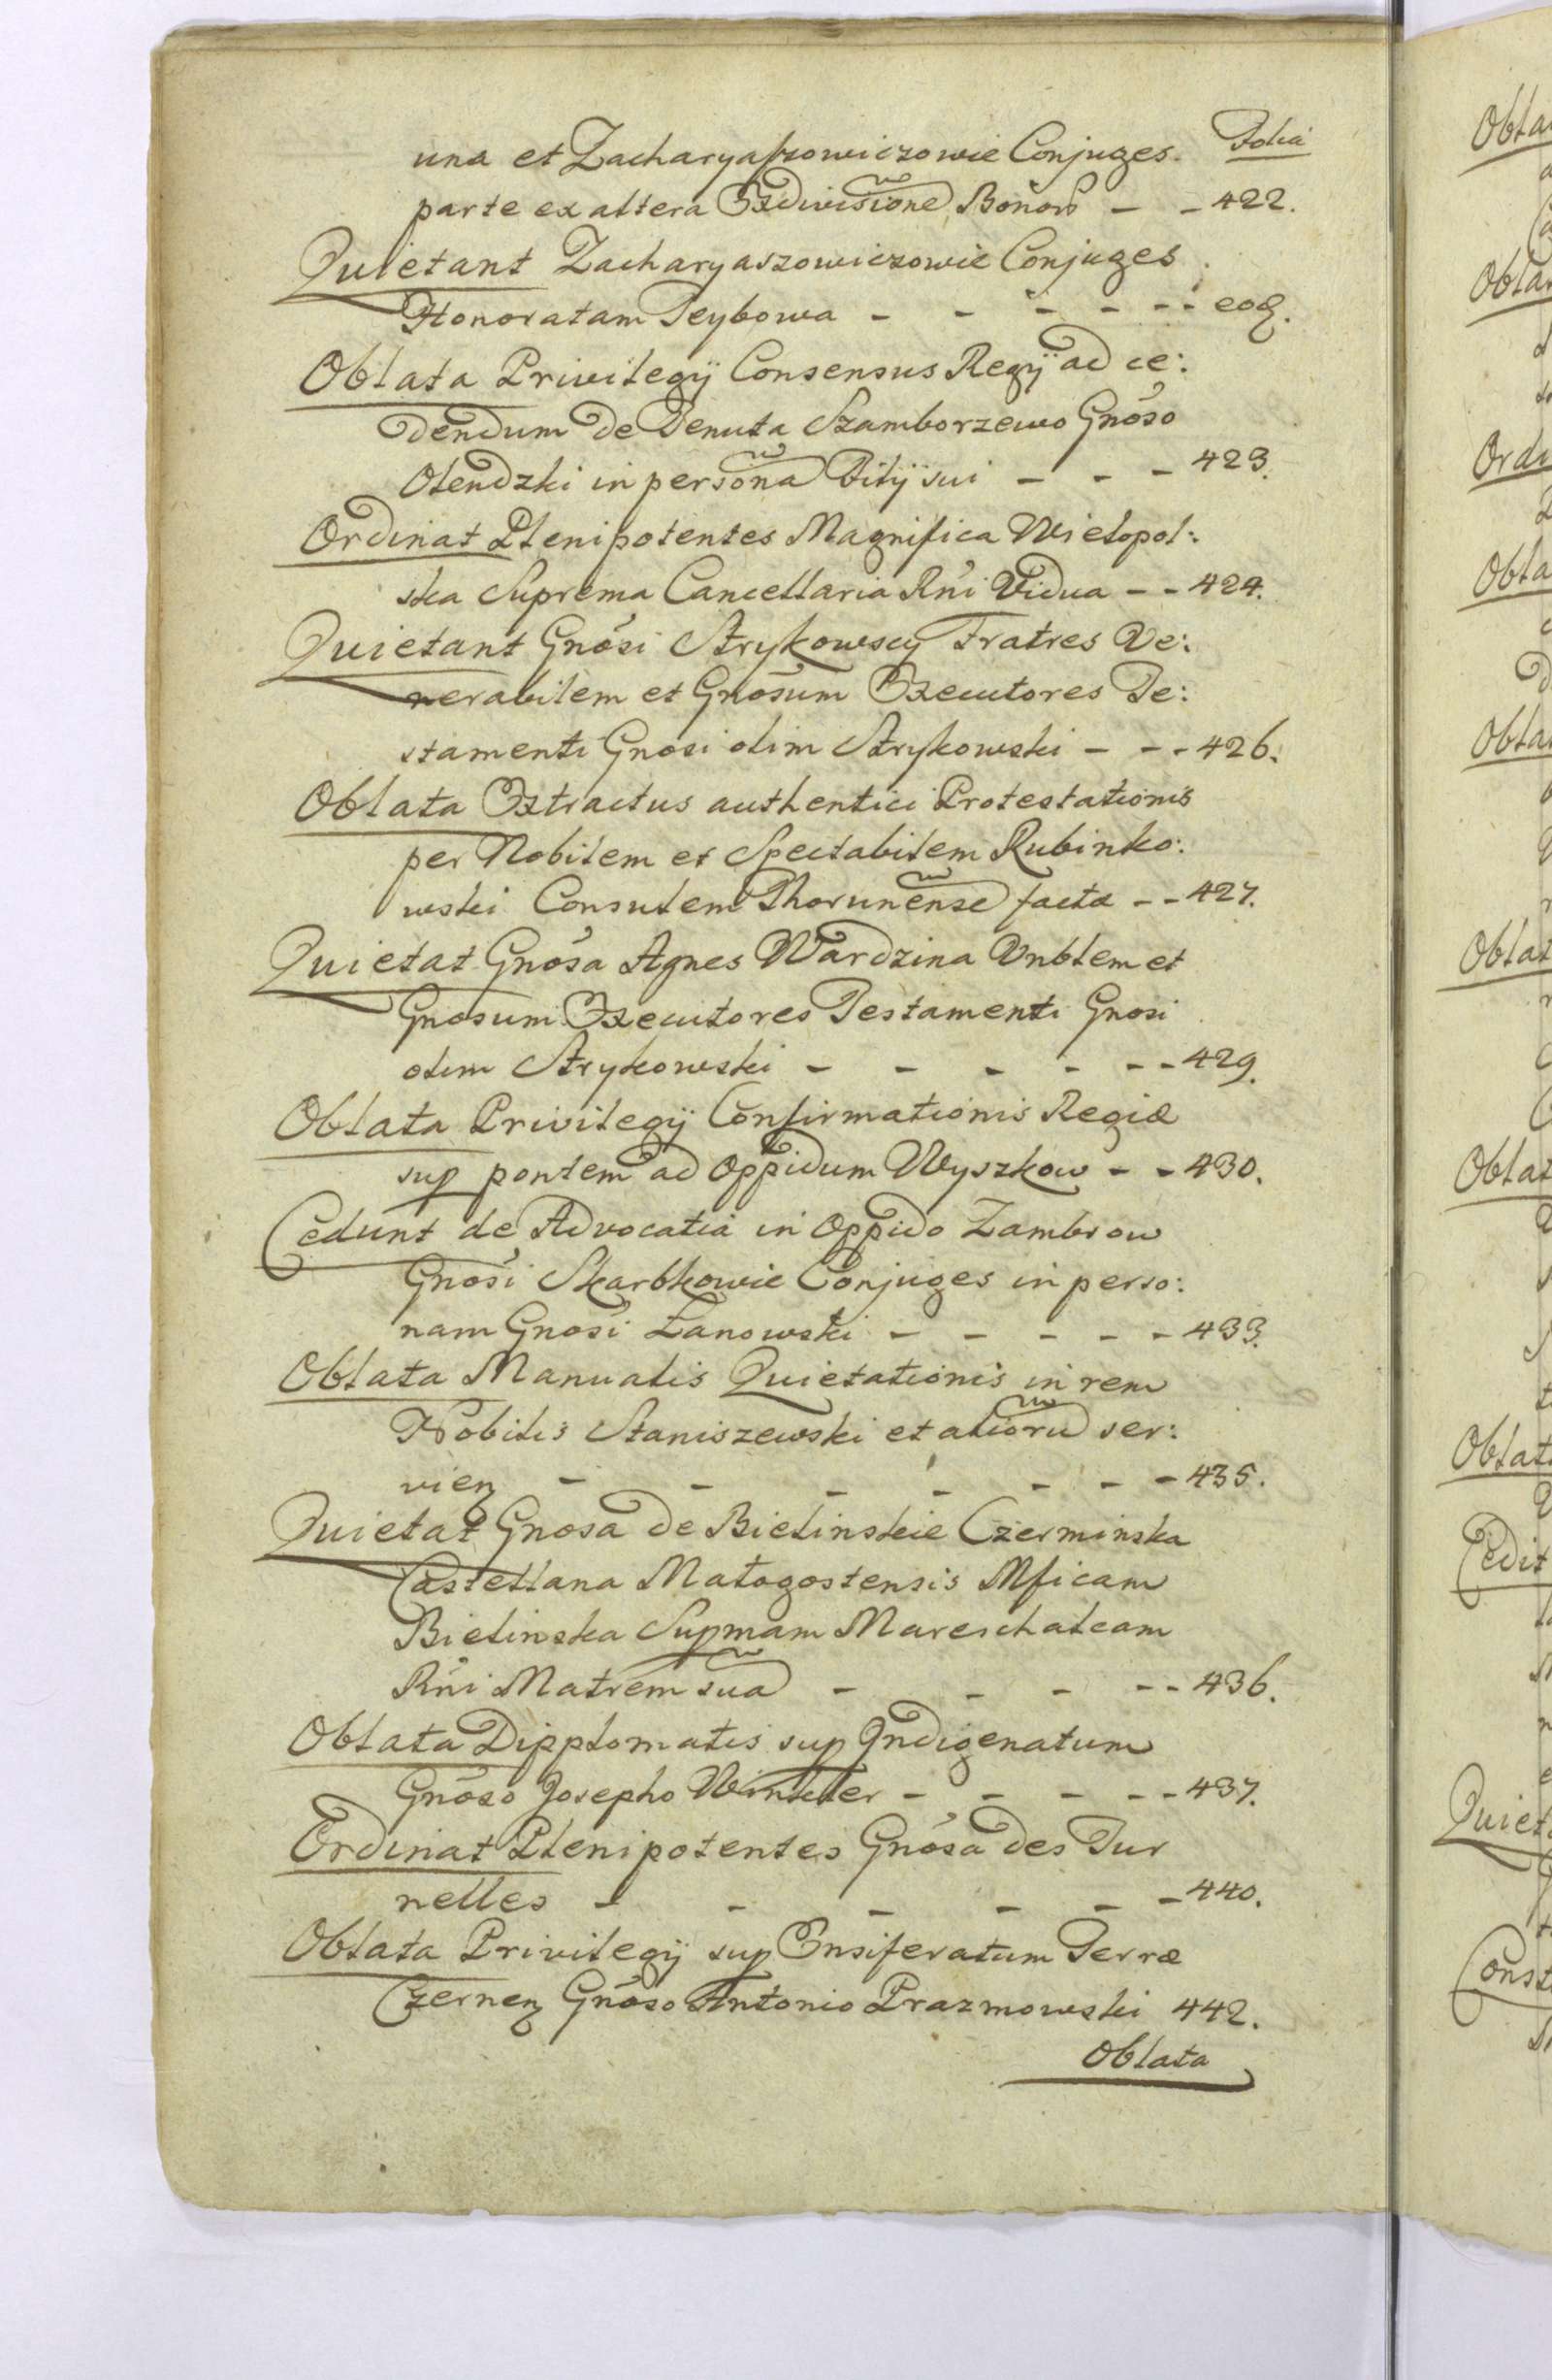 Folia
una et Zacharyaszowiczowie Conjuges
parte ex altera Exdivisione Bonorũ - - 422.
Quietant Zacharyaszowiczowie Conjuges
Honoratam Teybowa - - - - - - eodẽ.
Oblata Privilegÿ Consensus Regÿ ad ce:
dendum de Tenuta Szamborzewo Gnoso
Olendzki in persona Filÿ sui - - - 423.
Ordinat Plenipotentes Magnifica Wielopol:
ska Suprema Cancellaria Rni Vidua - - 424.
Quietant Gnosi Strykowscy Fratres Ve:
nerabilem et Gnosum Executores Te:
stamenti Gnosi olim Strykowski - - - 426.
Oblata Extractus authentici Protestationis
per Nobilem et Spectabilem Rubinko:
wski Consulem Thorunense facta - - 427.
Quietat Gnosa Agnes Wardzina Vnblem et
Gnosum Executores Testamenti Gnosi
olim Strykowski - - - - - - 429.
Oblata Privilegÿ Confirmationis Regiæ
sup pontem ad Oppidum Wyszkow - - 430.
Cedunt de Advocatia in Oppido Zambrow
Gnosi Skarbkowie Conjuges in perso:
nam Gnosi Łanowski - - - - - 433.
Oblata Manualis Quietationis in rem
Nobilis Staniszewski et aliorũ ser:
vien - - - - - - - 435.
Quietat Gnosa de Bielinskie Czerminska
Castellana Małogostensis Mficam
Bielinska Supmam Mareschalcam
Rni Matrem sua - - - - - 436.
Oblata Dipplomatis sup Indigenatum
Gnoso Josepho Winkler - - - - - 437.
Ordinat Plenipotentes Gnosa des Tur
nelles - - - - - - 440.
Oblata Privilegÿ sup Ensiferatum Terræ
Czernen Gnoso Antonio Prazmowski 442.
Oblata
Obla
Obla
Ordi
Obla
Obla
Oblat
Oblat
Oblat
Cedit
Quiet
Const